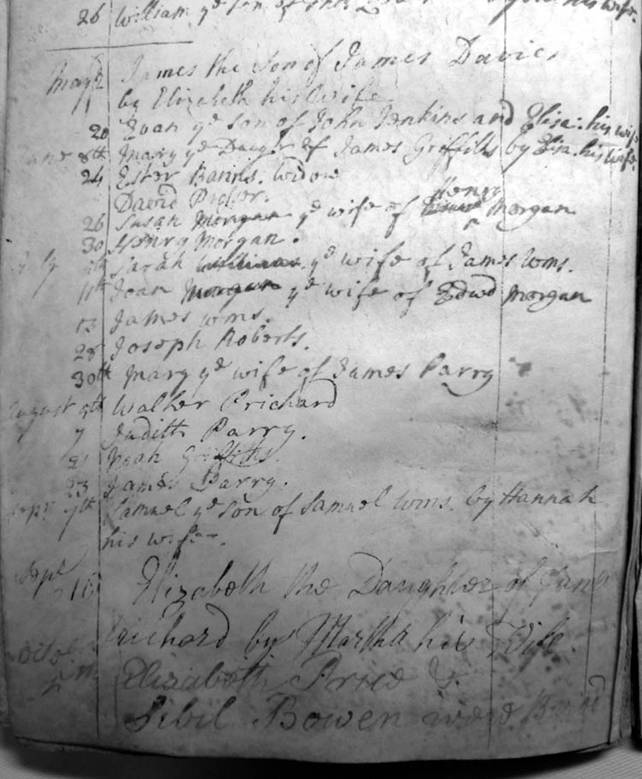 26 William ye son of
May
11 James the Son of James Davies
by Elizabeth his Wife
20 Evan ye son of John Jenkins and Eliza: his wife
June 8th Mary ye Daughr of James Griffiths by his wife
24 Ester Widow
David
26 Susan Morgan ye wife of Henry Morgan
30 Henry Morgan.
Sarah Williams ye wife of James Wms.
11th Joan Morgan ye wife of Edwd Morgan
13 James Wms.
28 Joseph Roberts.
30th Mary ye wife of James Parry
August 5th Walter Prichard
7 Judith Parry.
21 Griffiths
23 James Parry.
Sept 7th Samuel ye son of Samuel Wms. by Hannah
his wife.
Sept
16 Elizabeth the Daughter of James
Prichard by Martha his Wife.
Elizabeth Price &
Sibil Bowen were